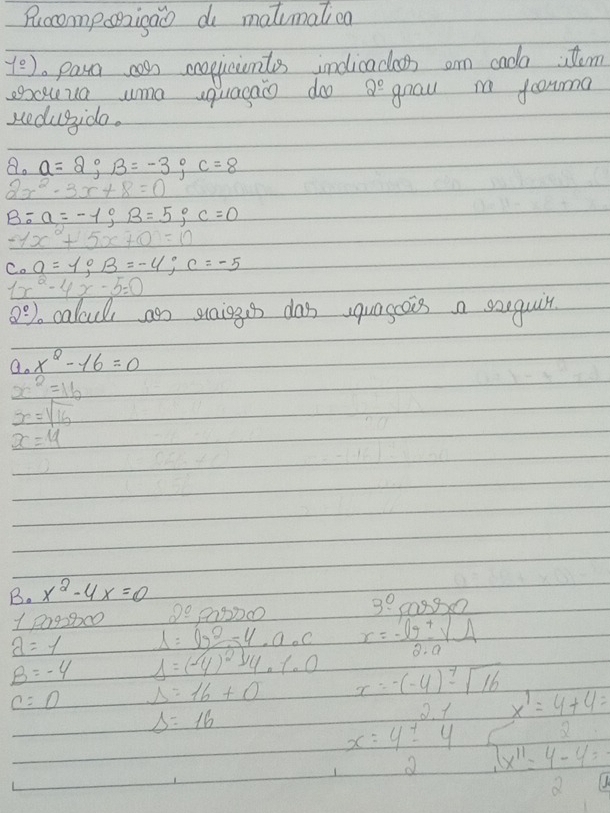 Recomposição de matematica
1º). para os coeficientes indicados em cada item
escreva uma equação do 2º grau na forma
reduzida.
a. a = 2; B = -3; c = 8
2x² - 3x + 8 = 0
B = a = -1; B = 5; c = 0
-1x² + 5x + 0 = 0
C. a = 1; B = -4; c = -5
1x² - 4x - 5 = 0
2º). calcule as raizes das equações a seguir.
a. x² - 16 = 0
x² = 16
x = √16
x = 4
B. x² - 4x = 0
1 Passo 2º Passo 3º passo
a = 1 Δ = b² - 4.a.c x = -b ± √Δ
2.a
B = -4 Δ = (-4)² - 4.1.0
c = 0 Δ = 16 + 0 x = -(-4) ± √16
2.1
Δ = 16 x' = 4 + 4 =
2
x = 4 ± 4
2
x'' = 4 - 4 =
2